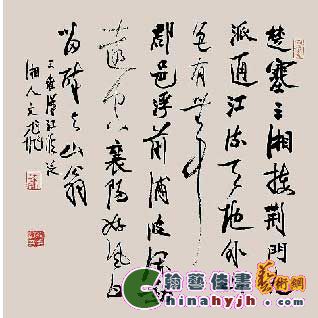 楚塞三湘接荆門九
派通江流天地外
色有無中
郡邑浮前浦波瀾動
遠空襄陽好風日
留醉與山翁
王維漢江臨泛
湘人文
翰藝佳畫
藝術網
Chinahyjh.com